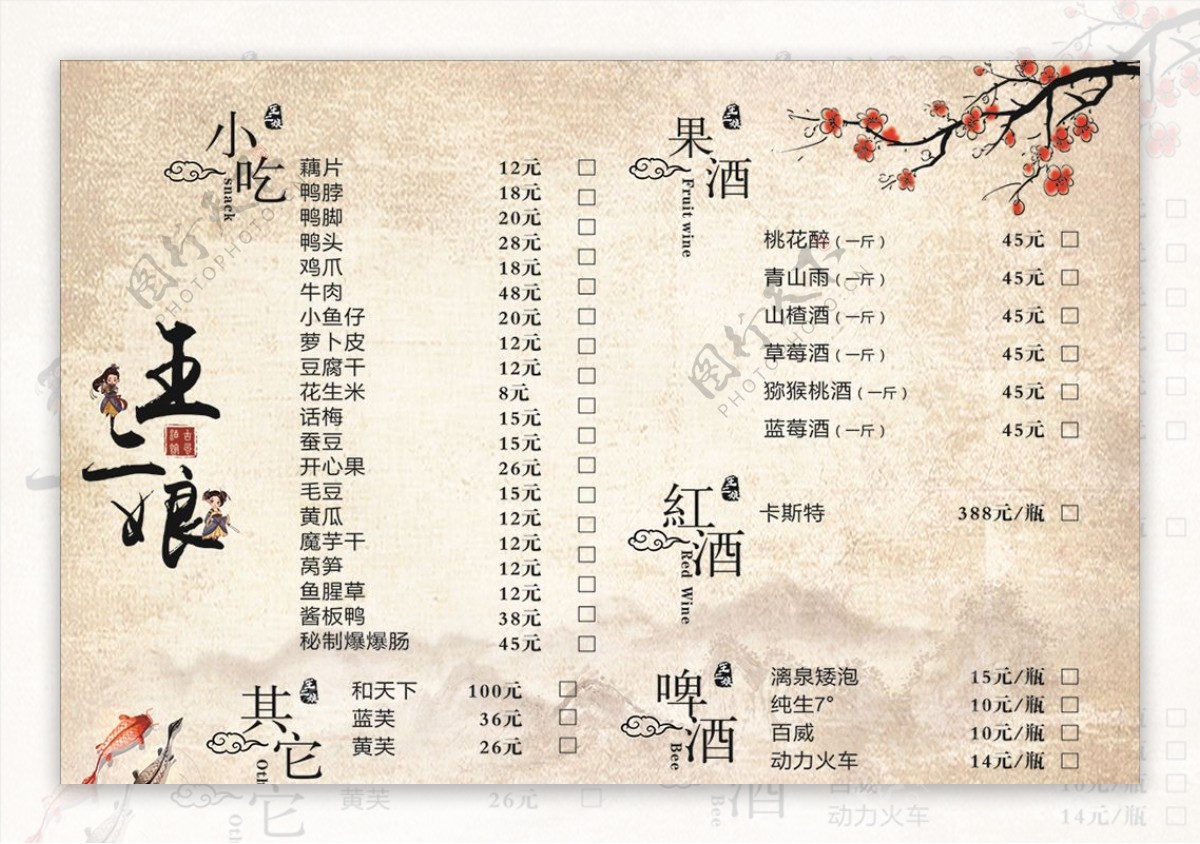 小吃
snack
藕片 12元
鸭脖 18元
鸭脚 20元
鸭头 28元
鸡爪 18元
牛肉 48元
小鱼仔 20元
萝卜皮 12元
豆腐干 12元
花生米 8元
话梅 15元
蚕豆 15元
开心果 26元
毛豆 15元
黄瓜 12元
魔芋干 12元
莴笋 12元
鱼腥草 12元
酱板鸭 38元
秘制爆爆肠 45元
王二娘
其它
Oth
和天下 100元
蓝芙 36元
黄芙 26元
果酒
Fruit wine
桃花醉(一斤) 45元
青山雨(一斤) 45元
山楂酒(一斤) 45元
草莓酒(一斤) 45元
猕猴桃酒(一斤) 45元
蓝莓酒(一斤) 45元
紅酒
Red Wine
卡斯特 388元/瓶
啤酒
Bee
漓泉矮泡 15元/瓶
纯生7° 10元/瓶
百威 10元/瓶
动力火车 14元/瓶
图行天下
PHOTOPHOTO.CN
图行天下
PHOTOPHOTO.CN
黄芙 26元
动力火车 14元/瓶